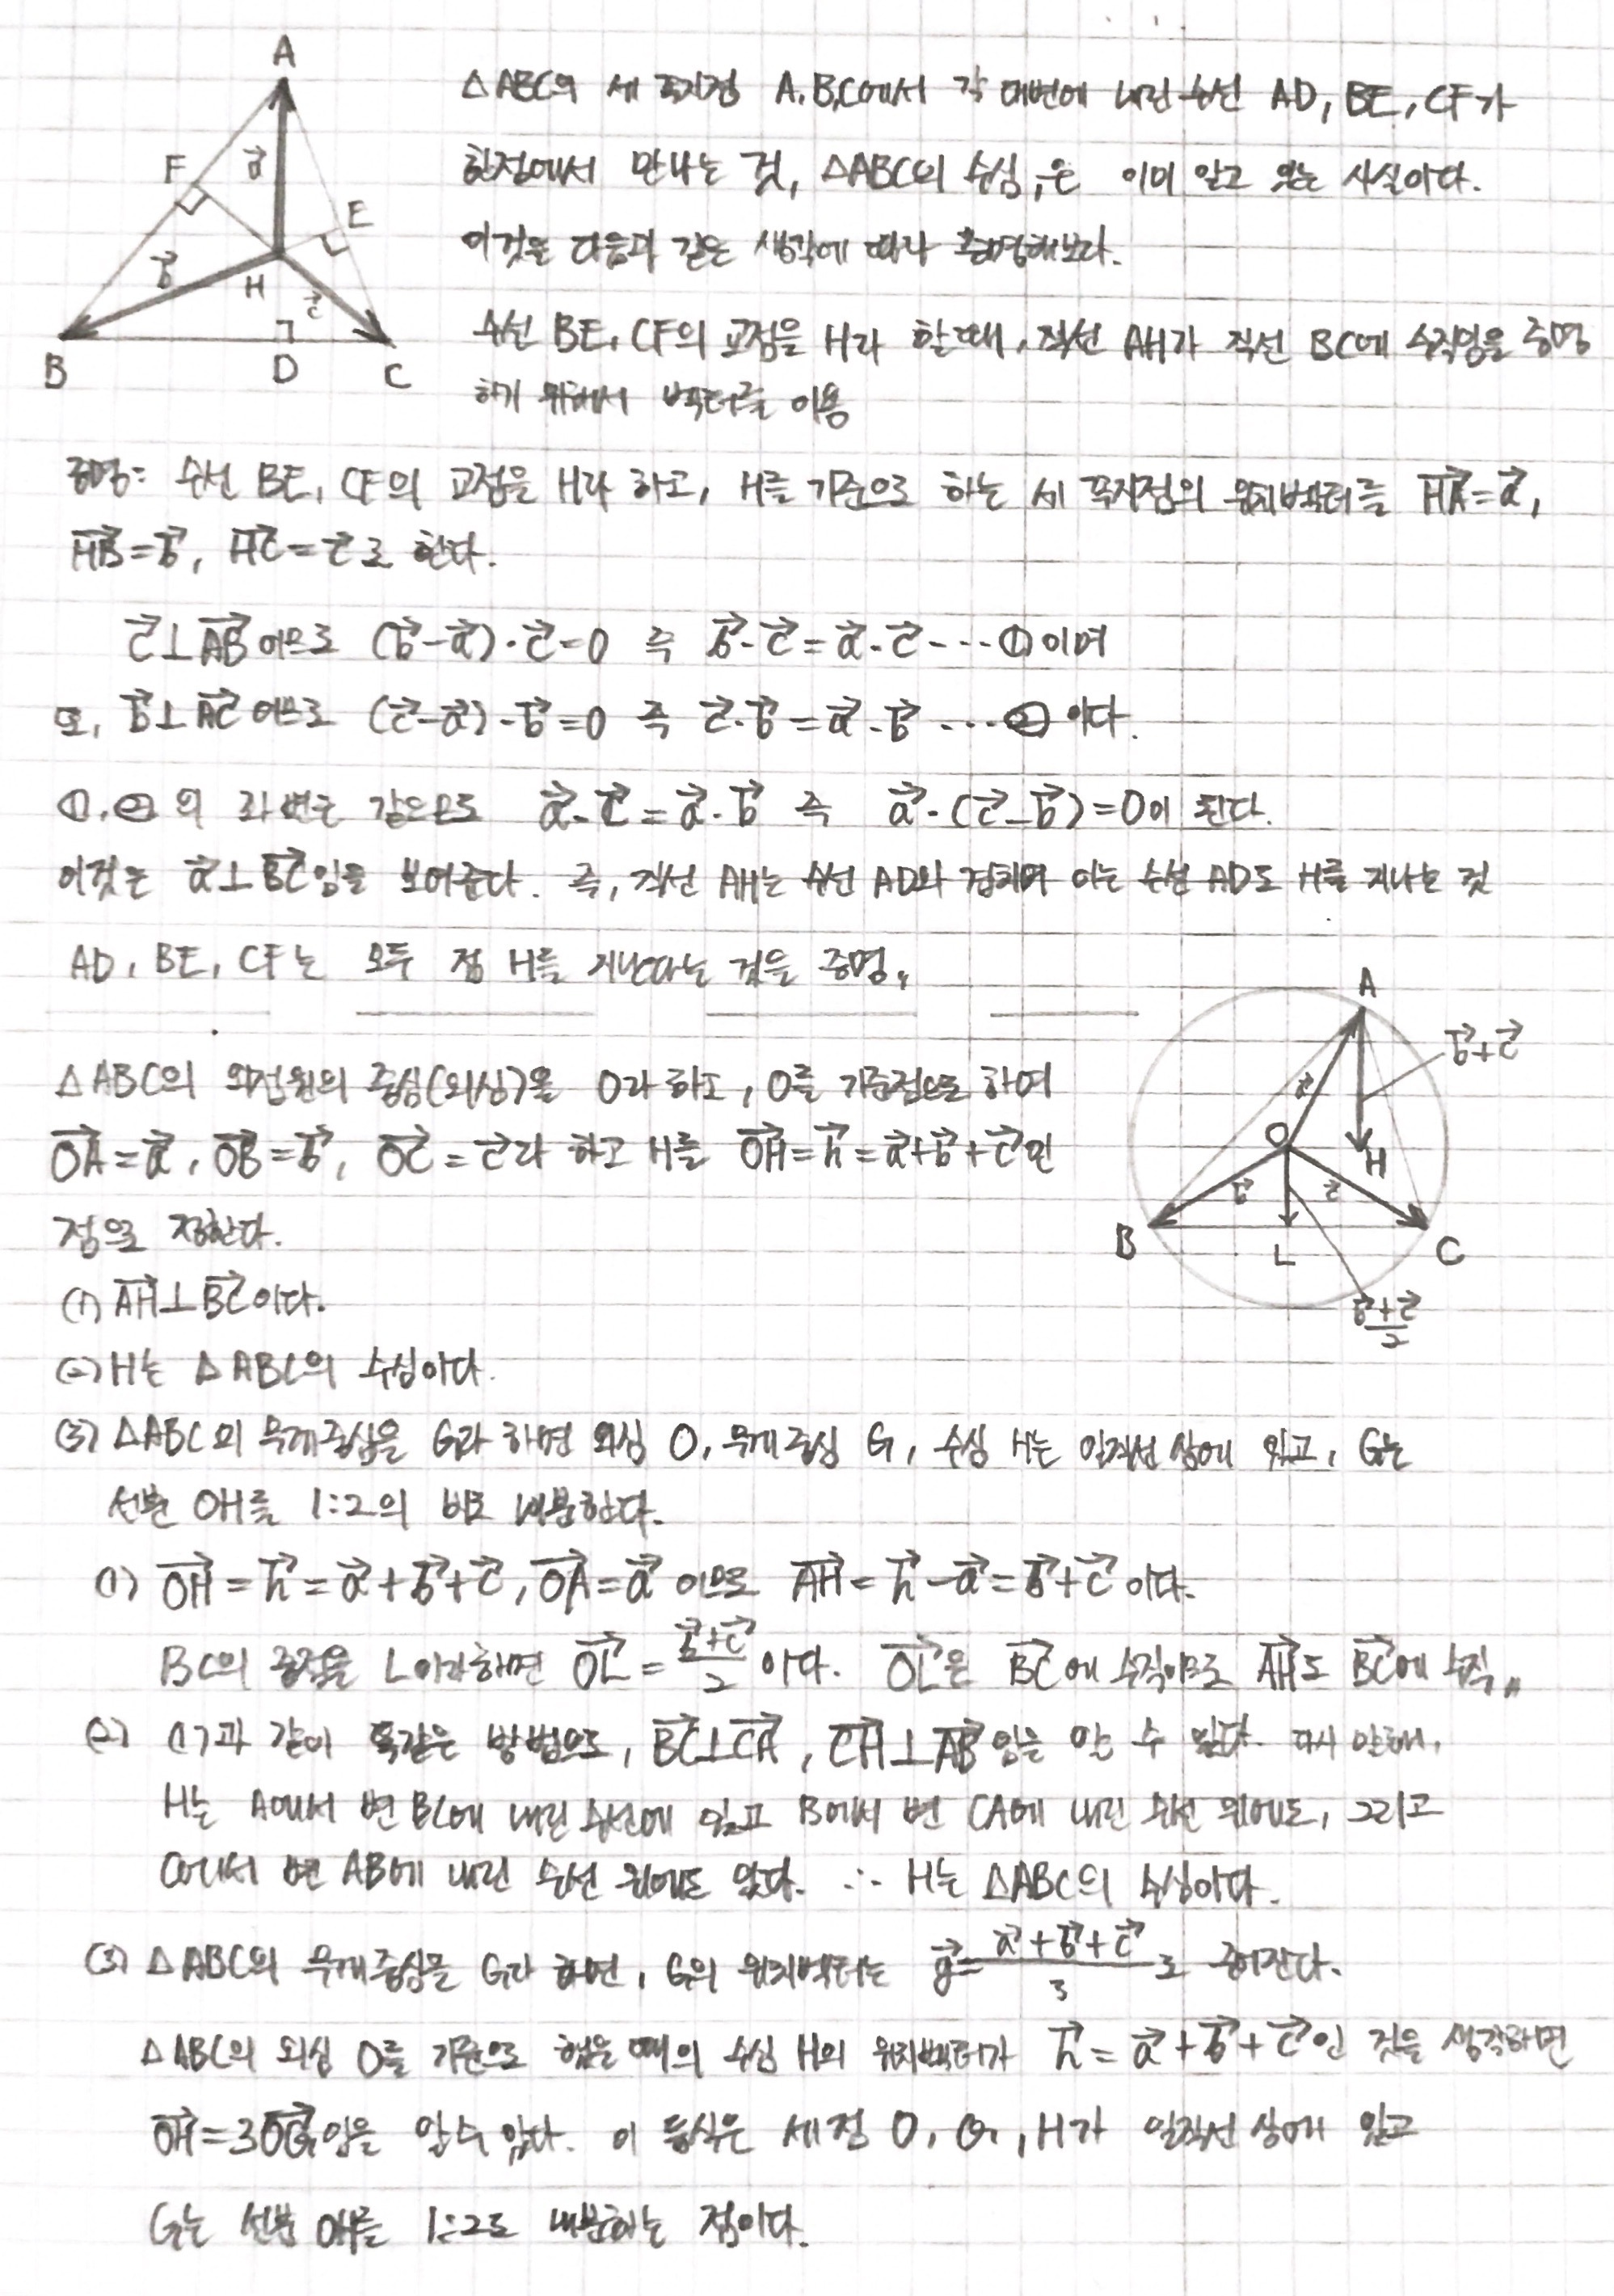 A
F
E
a⃗
b⃗
H
c⃗
B
D
C
△ABC의 세 꼭지점 A, B, C에서 각 대변에 내린 수선 AD, BE, CF가
한점에서 만나는 것, △ABC의 수심,은 이미 알고 있는 사실이다.
이것을 다음과 같은 생각에 따라 증명해보다.
수선 BE, CF의 교점을 H라 할때, 직선 AH가 직선 BC에 수직임을 증명
하기 위해서 벡터를 이용
증명: 수선 BE, CF의 교점을 H라 하고, H를 기준으로 하는 세 꼭지점의 위치벡터를 HA⃗=a⃗,
HB⃗=b⃗, HC⃗=c⃗로 한다.
c⃗⊥AB⃗이므로 (b⃗-a⃗)·c⃗=0 즉 b⃗·c⃗=a⃗·c⃗ ··· ①이며
또, b⃗⊥AC⃗이므로 (c⃗-a⃗)·b⃗=0 즉 c⃗·b⃗=a⃗·b⃗ ··· ②이다.
①, ②의 좌변은 같으므로 a⃗·c⃗=a⃗·b⃗ 즉 a⃗·(c⃗-b⃗)=0이 된다.
이것은 a⃗⊥BC⃗임을 보여준다. 즉, 직선 AH는 수선 AD와 겹치며 이는 수선 AD도 H를 지나는 것
AD, BE, CF는 모두 점 H를 지난다는 것을 증명〃
A
b⃗+c⃗
a⃗
O
H
b⃗
c⃗
B
L
C
b⃗+c⃗/2
△ABC의 외접원의 중심(외심)을 O라 하고, O를 기준점으로 하여
OA⃗=a⃗, OB⃗=b⃗, OC⃗=c⃗라 하고 H를 OH⃗=h⃗=a⃗+b⃗+c⃗인
점으로 정한다.
(1) AH⃗⊥BC⃗이다.
(2) H는 △ABC의 수심이다.
(3) △ABC의 무게중심을 G라 하면 외심 O, 무게중심 G, 수심 H는 일직선 상에 있고, G는
선분 OH를 1:2의 비로 내분한다.
(1) OH⃗=h⃗=a⃗+b⃗+c⃗, OA⃗=a⃗이므로 AH⃗=h⃗-a⃗=b⃗+c⃗이다.
BC의 중점을 L이라하면 OL⃗=b⃗+c⃗/2이다. OL⃗은 BC⃗에 수직이므로 AH⃗도 BC⃗에 수직〃
(2) (1)과 같이 똑같은 방법으로, BC⃗⊥CA⃗, CH⃗⊥AB⃗임을 알 수 있다. 다시 말해,
H는 A에서 변 BC에 내린 수선에 있고 B에서 변 CA에 내린 수선 위에도, 그리고
C에서 변 AB에 내린 수선 위에도 있다. ∴ H는 △ABC의 수심이다.
(3) △ABC의 무게중심을 G라 하면, G의 위치벡터는 g⃗=a⃗+b⃗+c⃗/3로 주어진다.
△ABC의 외심 O를 기준으로 했을 때의 수심 H의 위치벡터가 h⃗=a⃗+b⃗+c⃗인 것을 생각하면
OH⃗=3OG⃗임을 알 수 있다. 이 등식은 세 점 O, G, H가 일직선 상에 있고
G는 선분 OH를 1:2로 내분하는 점이다.